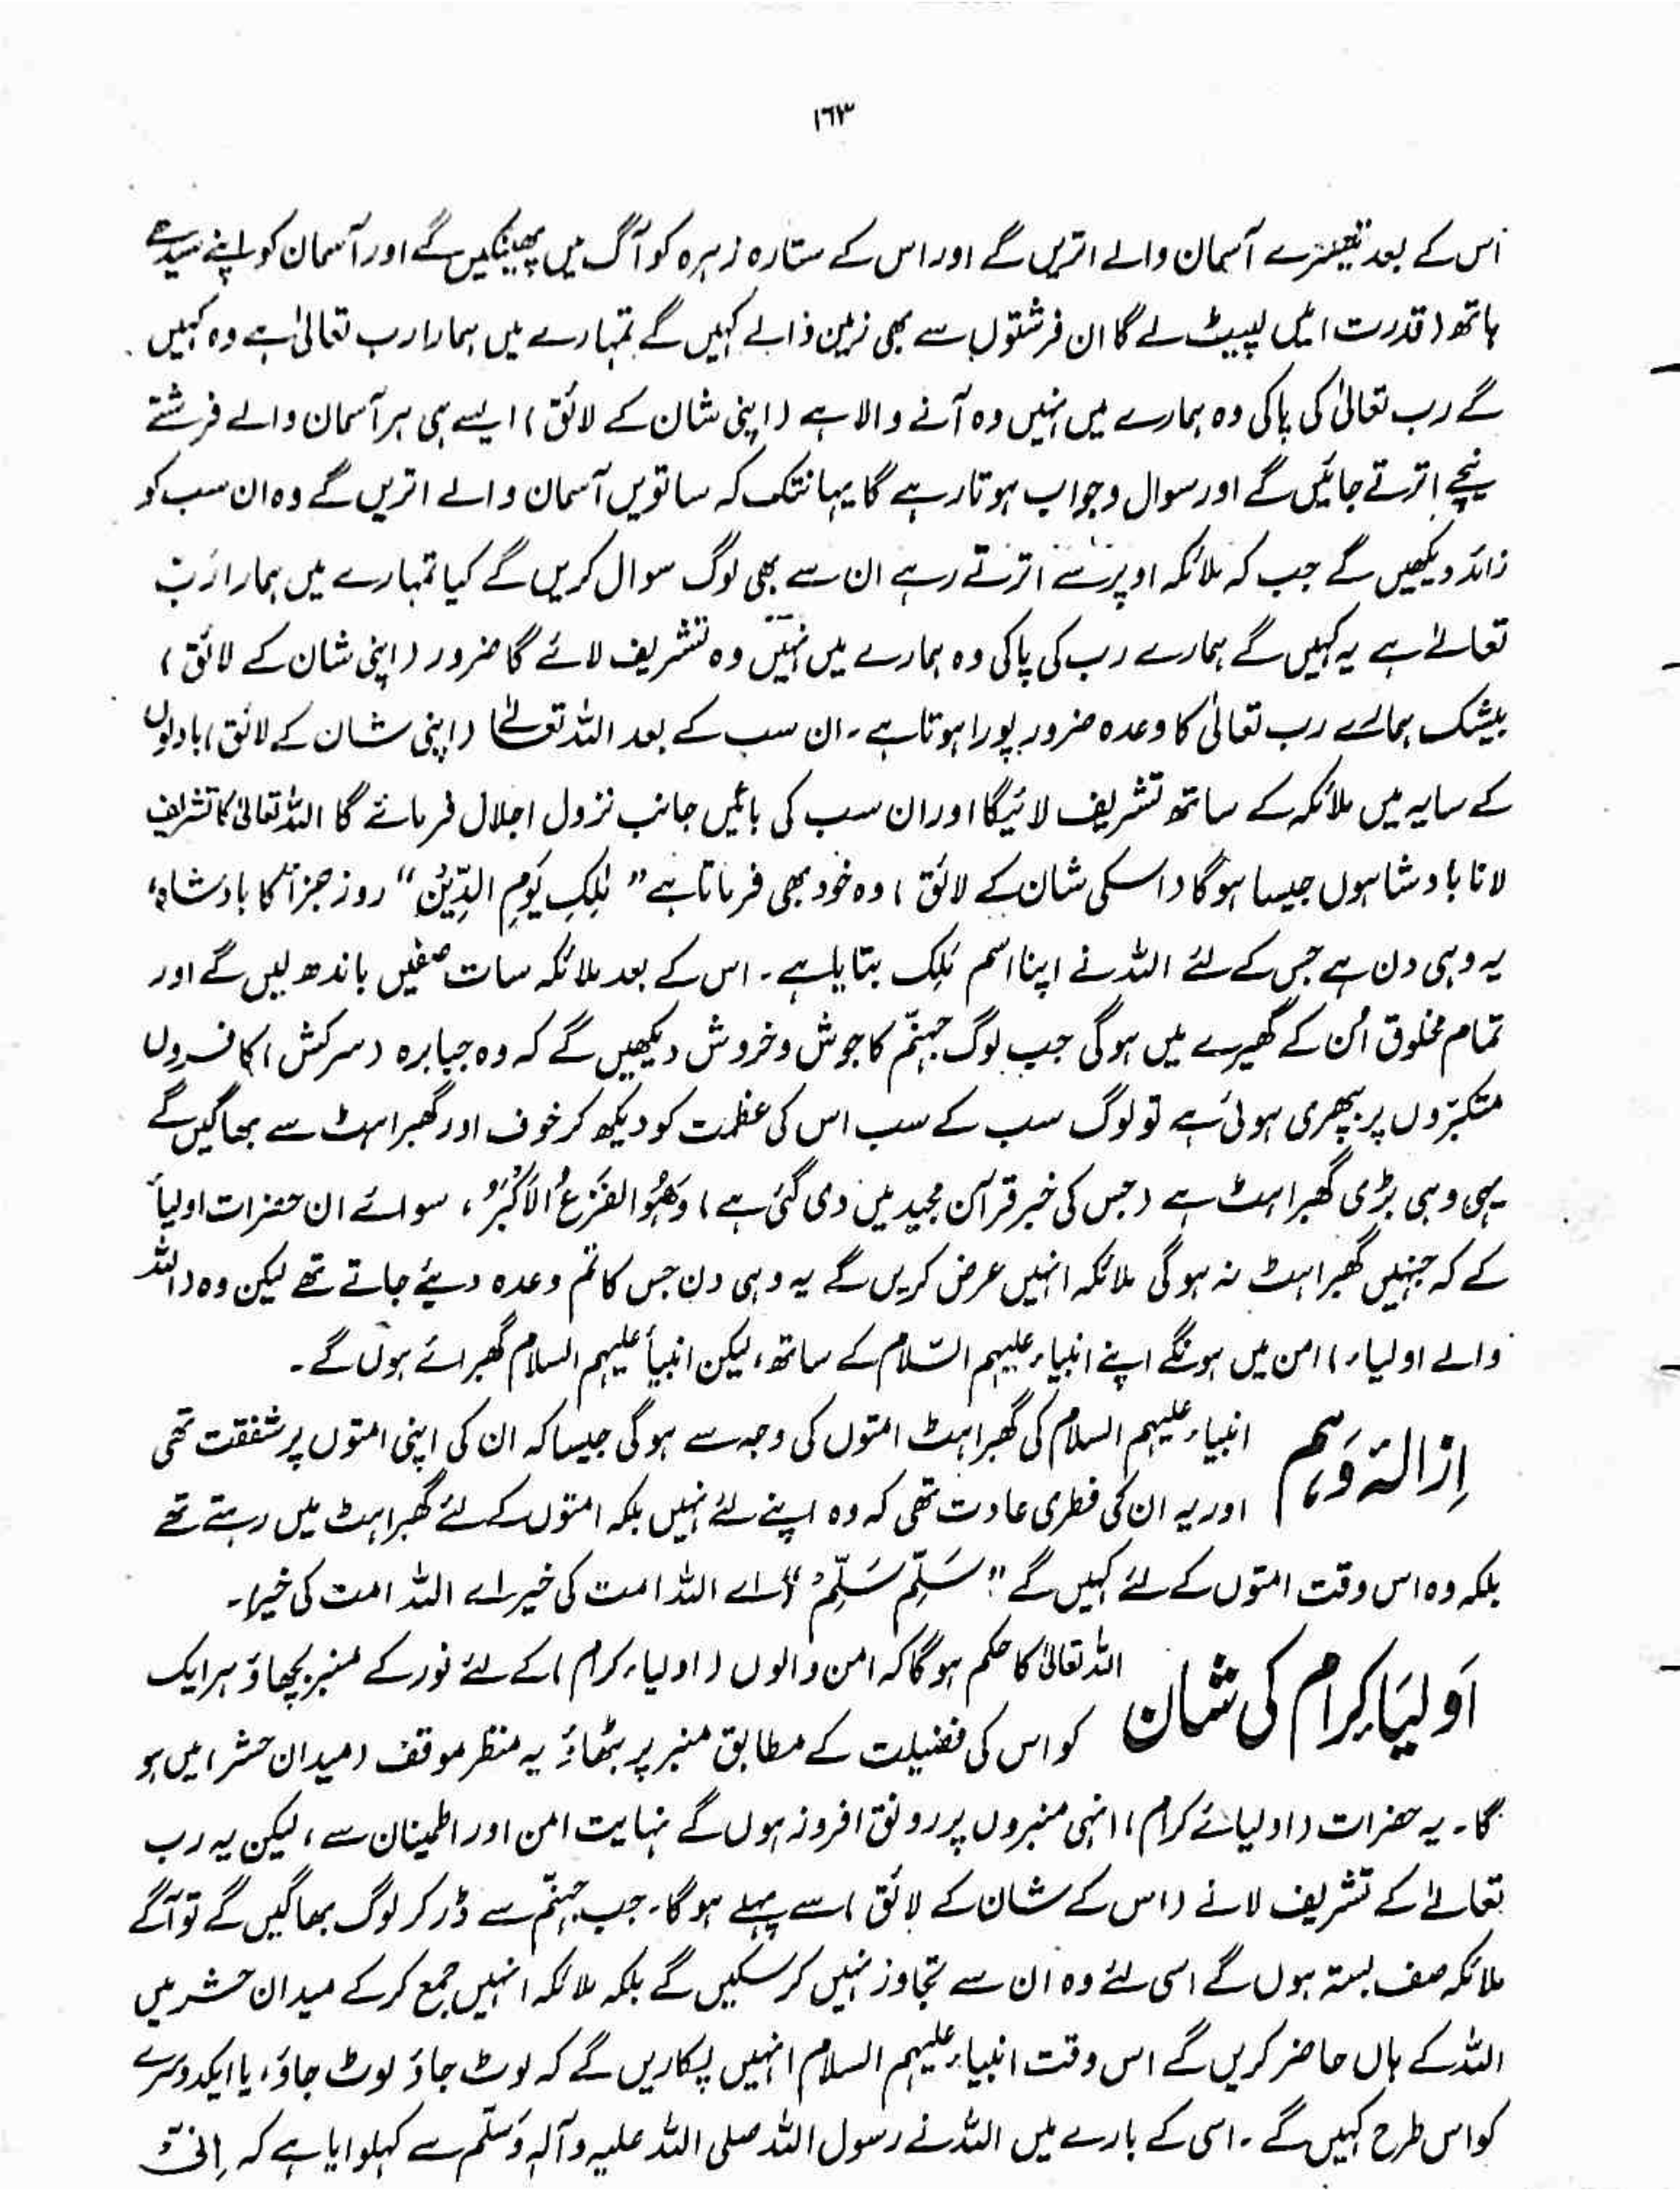 ۱۶۳
اس کے بعد تیسرے آسمان والے اتریں گے اور اس کے ستارہ زہرہ کو آگ میں پھینکیں گے اور آسمان کو اپنے سیدھے
ہاتھ (قدرت) میں لپیٹ لے گا ان فرشتوں سے بھی زمین والے کہیں گے تمہارے میں ہمارا رب تعالیٰ ہے وہ کہیں
گے رب تعالیٰ کی پاکی وہ ہمارے میں نہیں وہ آنے والا ہے (اپنی شان کے لائق) ایسے ہی ہر آسمان والے فرشتے
نیچے اترتے جائیں گے اور سوال وجواب ہوتا رہے گا یہانتک کہ ساتویں آسمان والے اتریں گے وہ ان سب کو
زائد دیکھیں گے جب کہ ملائکہ اوپر سے اترتے رہے ان سے بھی لوگ سوال کریں گے کیا تمہارے میں ہمارا رب
تعالےٰ ہے یہ کہیں گے ہمارے رب کی پاکی وہ ہمارے میں نہیں وہ تشریف لائے گا ضرور (اپنی شان کے لائق)
بیشک ہمارے رب تعالیٰ کا وعدہ ضرور پورا ہوتا ہے۔ ان سب کے بعد اللہ تعالےٰ (اپنی شان کے لائق) بادلوں
کے سایہ میں ملائکہ کے ساتھ تشریف لائیگا اور ان سب کی بائیں جانب نزول اجلال فرمائے گا اللہ تعالیٰ کا تشریف
لانا بادشاہوں جیسا ہوگا (اسکی شان کے لائق) وہ خود بھی فرماتا ہے "مٰلِکِ یَوْمِ الدِّیْنِ" روز جزا کا بادشاہ،
یہ وہی دن ہے جس کے لئے اللہ نے اپنا اسم مَلِک بتایا ہے۔ اس کے بعد ملائکہ سات صفیں باندھ لیں گے اور
تمام مخلوق اُن کے گھیرے میں ہوگی جب لوگ جہنّم کا جوش وخروش دیکھیں گے کہ وہ جبابرہ (سرکش) کافروں
متکبّروں پر بپھری ہوئی ہے تو لوگ سب کے سب اس کی عظمت کو دیکھ کر خوف اور گھبراہٹ سے بھاگیں گے
یہی وہی بڑی گھبراہٹ ہے (جس کی خبر قرآن مجید میں دی گئی ہے) وَھُوَ الفَزَعُ الْاَکْبَرُ، سوائے ان حضرات اولیأ
کے کہ جنہیں گھبراہٹ نہ ہوگی ملائکہ انہیں عرض کریں گے یہ وہی دن جس کا تم وعدہ دیئے جاتے تھے لیکن وہ (اللہ
والے اولیاء) امن میں ہونگے اپنے انبیاء علیہم السّلام کے ساتھ، لیکن انبیأ علیہم السلام گھبرائے ہوں گے۔
اِزالۂ وَہم انبیاء علیہم السلام کی گھبراہٹ امتوں کی وجہ سے ہوگی جیسا کہ ان کی اپنی امتوں پر شفقت تھی
اور یہ ان کی فطری عادت تھی کہ وہ اپنے لئے نہیں بلکہ امتوں کے لئے گھبراہٹ میں رہتے تھے
بلکہ وہ اس وقت امتوں کے لئے کہیں گے "سَلِّم سَلِّمْ" (اے اللہ امت کی خیر اے اللہ امت کی خیر)۔
اَولیَا کِرام کی شان اللہ تعالیٰ کا حکم ہوگا کہ امن والوں (اولیاء کرام) کے لئے نور کے منبر بچھاؤ ہر ایک
کو اس کی فضیلت کے مطابق منبر پر بٹھاؤ یہ منظر موقف (میدان حشر) میں ہو
گا۔ یہ حضرات (اولیائے کرام) انہی منبروں پر رونق افروز ہوں گے نہایت امن اور اطمینان سے، لیکن یہ رب
تعالےٰ کے تشریف لانے (اس کے شان کے لائق) سے پہلے ہوگا۔ جب جہنّم سے ڈر کر لوگ بھاگیں گے تو آگے
ملائکہ صف بستہ ہوں گے اسی لئے وہ ان سے تجاوز نہیں کرسکیں گے بلکہ ملائکہ انہیں جمع کرکے میدان حشر میں
اللہ کے ہاں حاضر کریں گے اس وقت انبیاء علیہم السلام انہیں پکاریں گے کہ لوٹ جاؤ لوٹ جاؤ، یا ایکدوسرے
کو اس طرح کہیں گے۔ اسی کے بارے میں اللہ نے رسول اللہ صلی اللہ علیہ وآلہ وسلّم سے کہلوایا ہے کہ اِنِّیْ